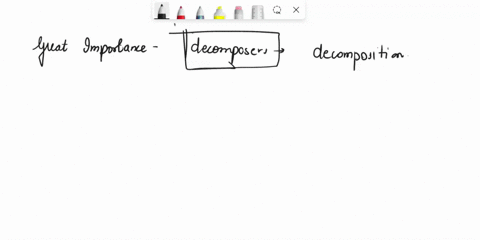 Great Importance - decomposers → decomposition